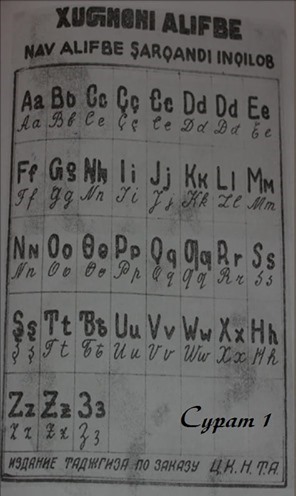 XUƢNONI ALIFBE
NAV ALIFBE ŞARQANDI INQILOB
Aa Bʙ Cc Çç Dd Ee
Aa Bʙ Cc Çç Dd Ee
Ff Gg Ii Jj Kk Ll Mm
Ff Gg Ii Jj Kk Ll Mm
Nn Oo Өө Pp Qq Ƣƣ Rr Ss
Nn Oo Өө Pp Qq Ƣƣ Rr Ss
Şş Tt Uu Vv Ww Xx Hh
Şş Tt Uu Vv Ww Xx Hh
Zz Ƶƶ Зз
Zz Ƶƶ Зз
Сурат 1
ИЗДАНИЕ ТАДЖГИЗА ПО ЗАКАЗУ Ц.К.Н.Т.А.